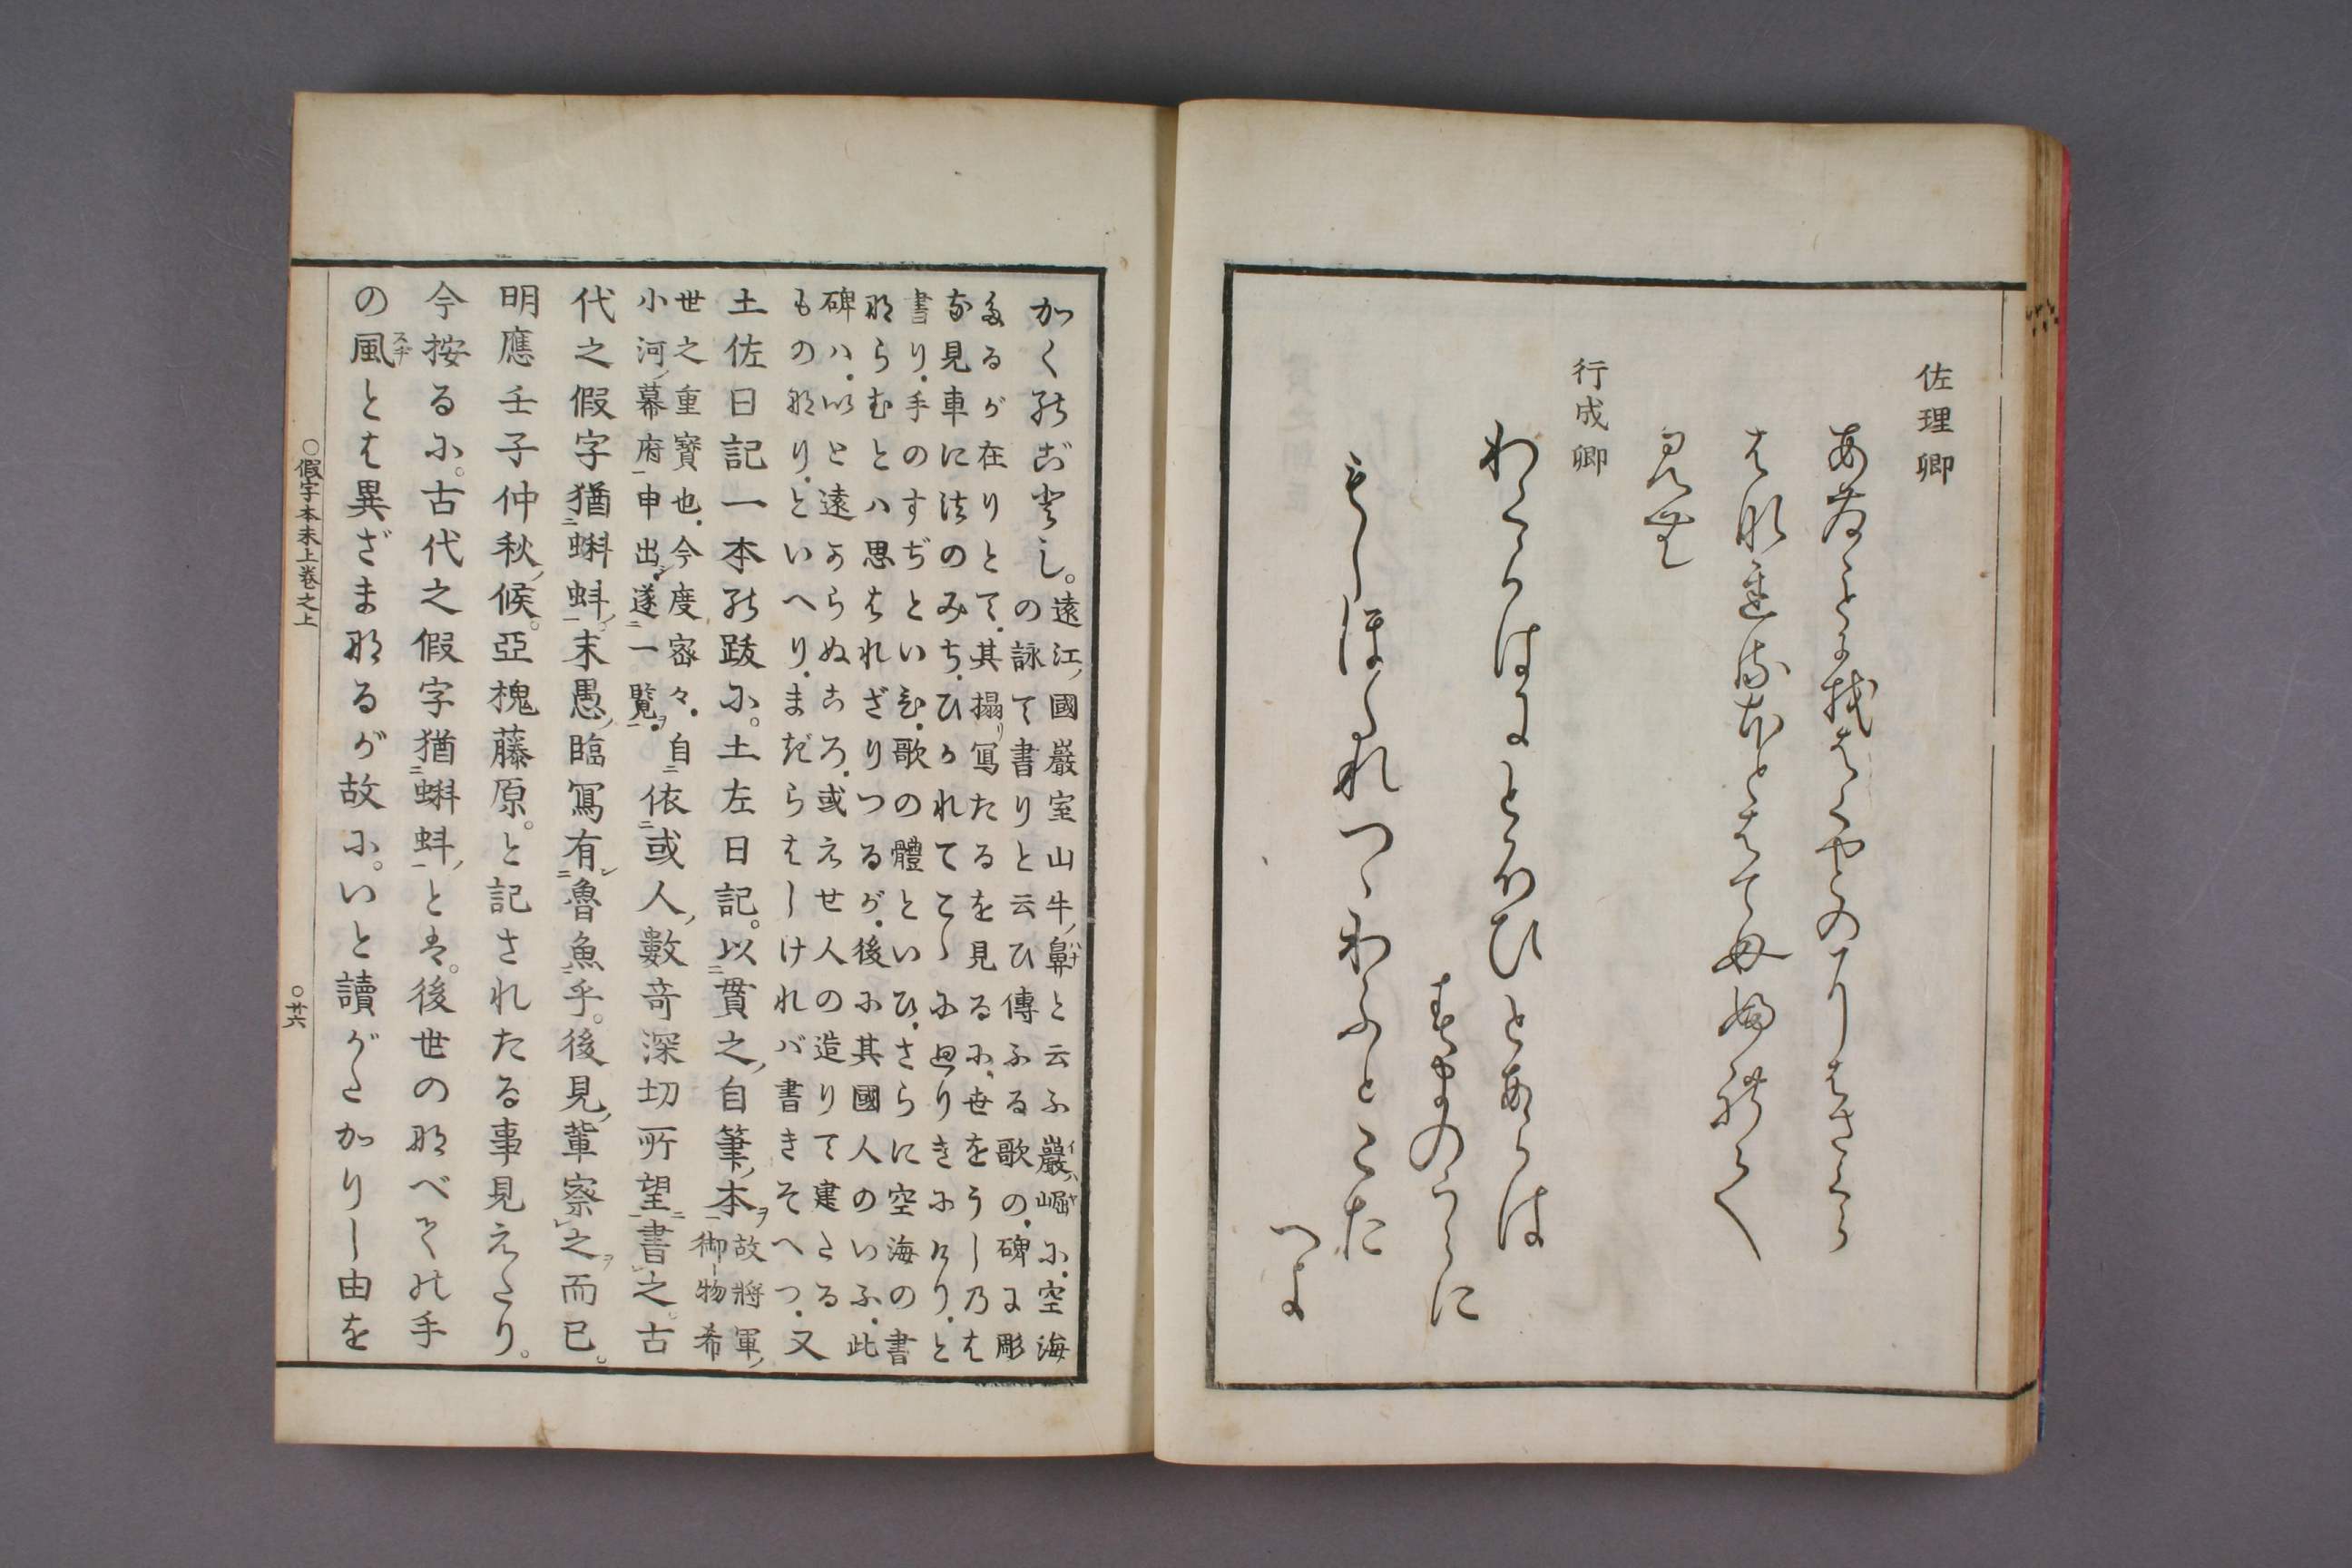 佐理卿
行成卿
わくらはにとふひとあらは
すまのうらに
もしほたれつゝわふとこた
へよ
かく能ごとし。遠江國巖室山牛鼻と云ふ巖崛に、空海
の詠て書りと云ひ傳ふる歌の、碑に彫
たるが在りとて、其搨寫たるを見るに、世をうし乃は
な見車に法のみち、ひかれてこゝに廻りきにけり、と
書り、手のすぢといひ、歌の體といひ、さらに空海の書
ならむとハ思はれざりつるが、後に其國人のいふ、此
碑ハ、以と遠からぬころ、或えせ人の造りて建たる
もの那り、といへり、まぎらはしければ書きそへつ、又
土佐日記一本能跋に。土左日記。以貫之自筆本
故將軍
御物希
世之重寳也、今度密々、自
小河幕府申出、遂一覽、
依或人數竒深切所望書之。古
代之假字猶蝌蚪、末愚臨寫有魯魚乎。後見輩察之而已。
明應壬子仲秋候。亞槐藤原。と記されたる事見えたり。
今按るに。古代之假字猶蝌蚪と。は後世の那べての手
の風とは異ざまなるが故に。いと讀がたかりし由を
○假字本末上卷之上
○廿六